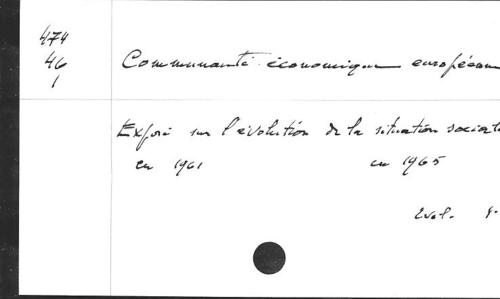 474
46
1
Communauté économique européenn
Exposé sur l'évolution de la situation sociale
en 1961 en 1965
2 vol. 8.